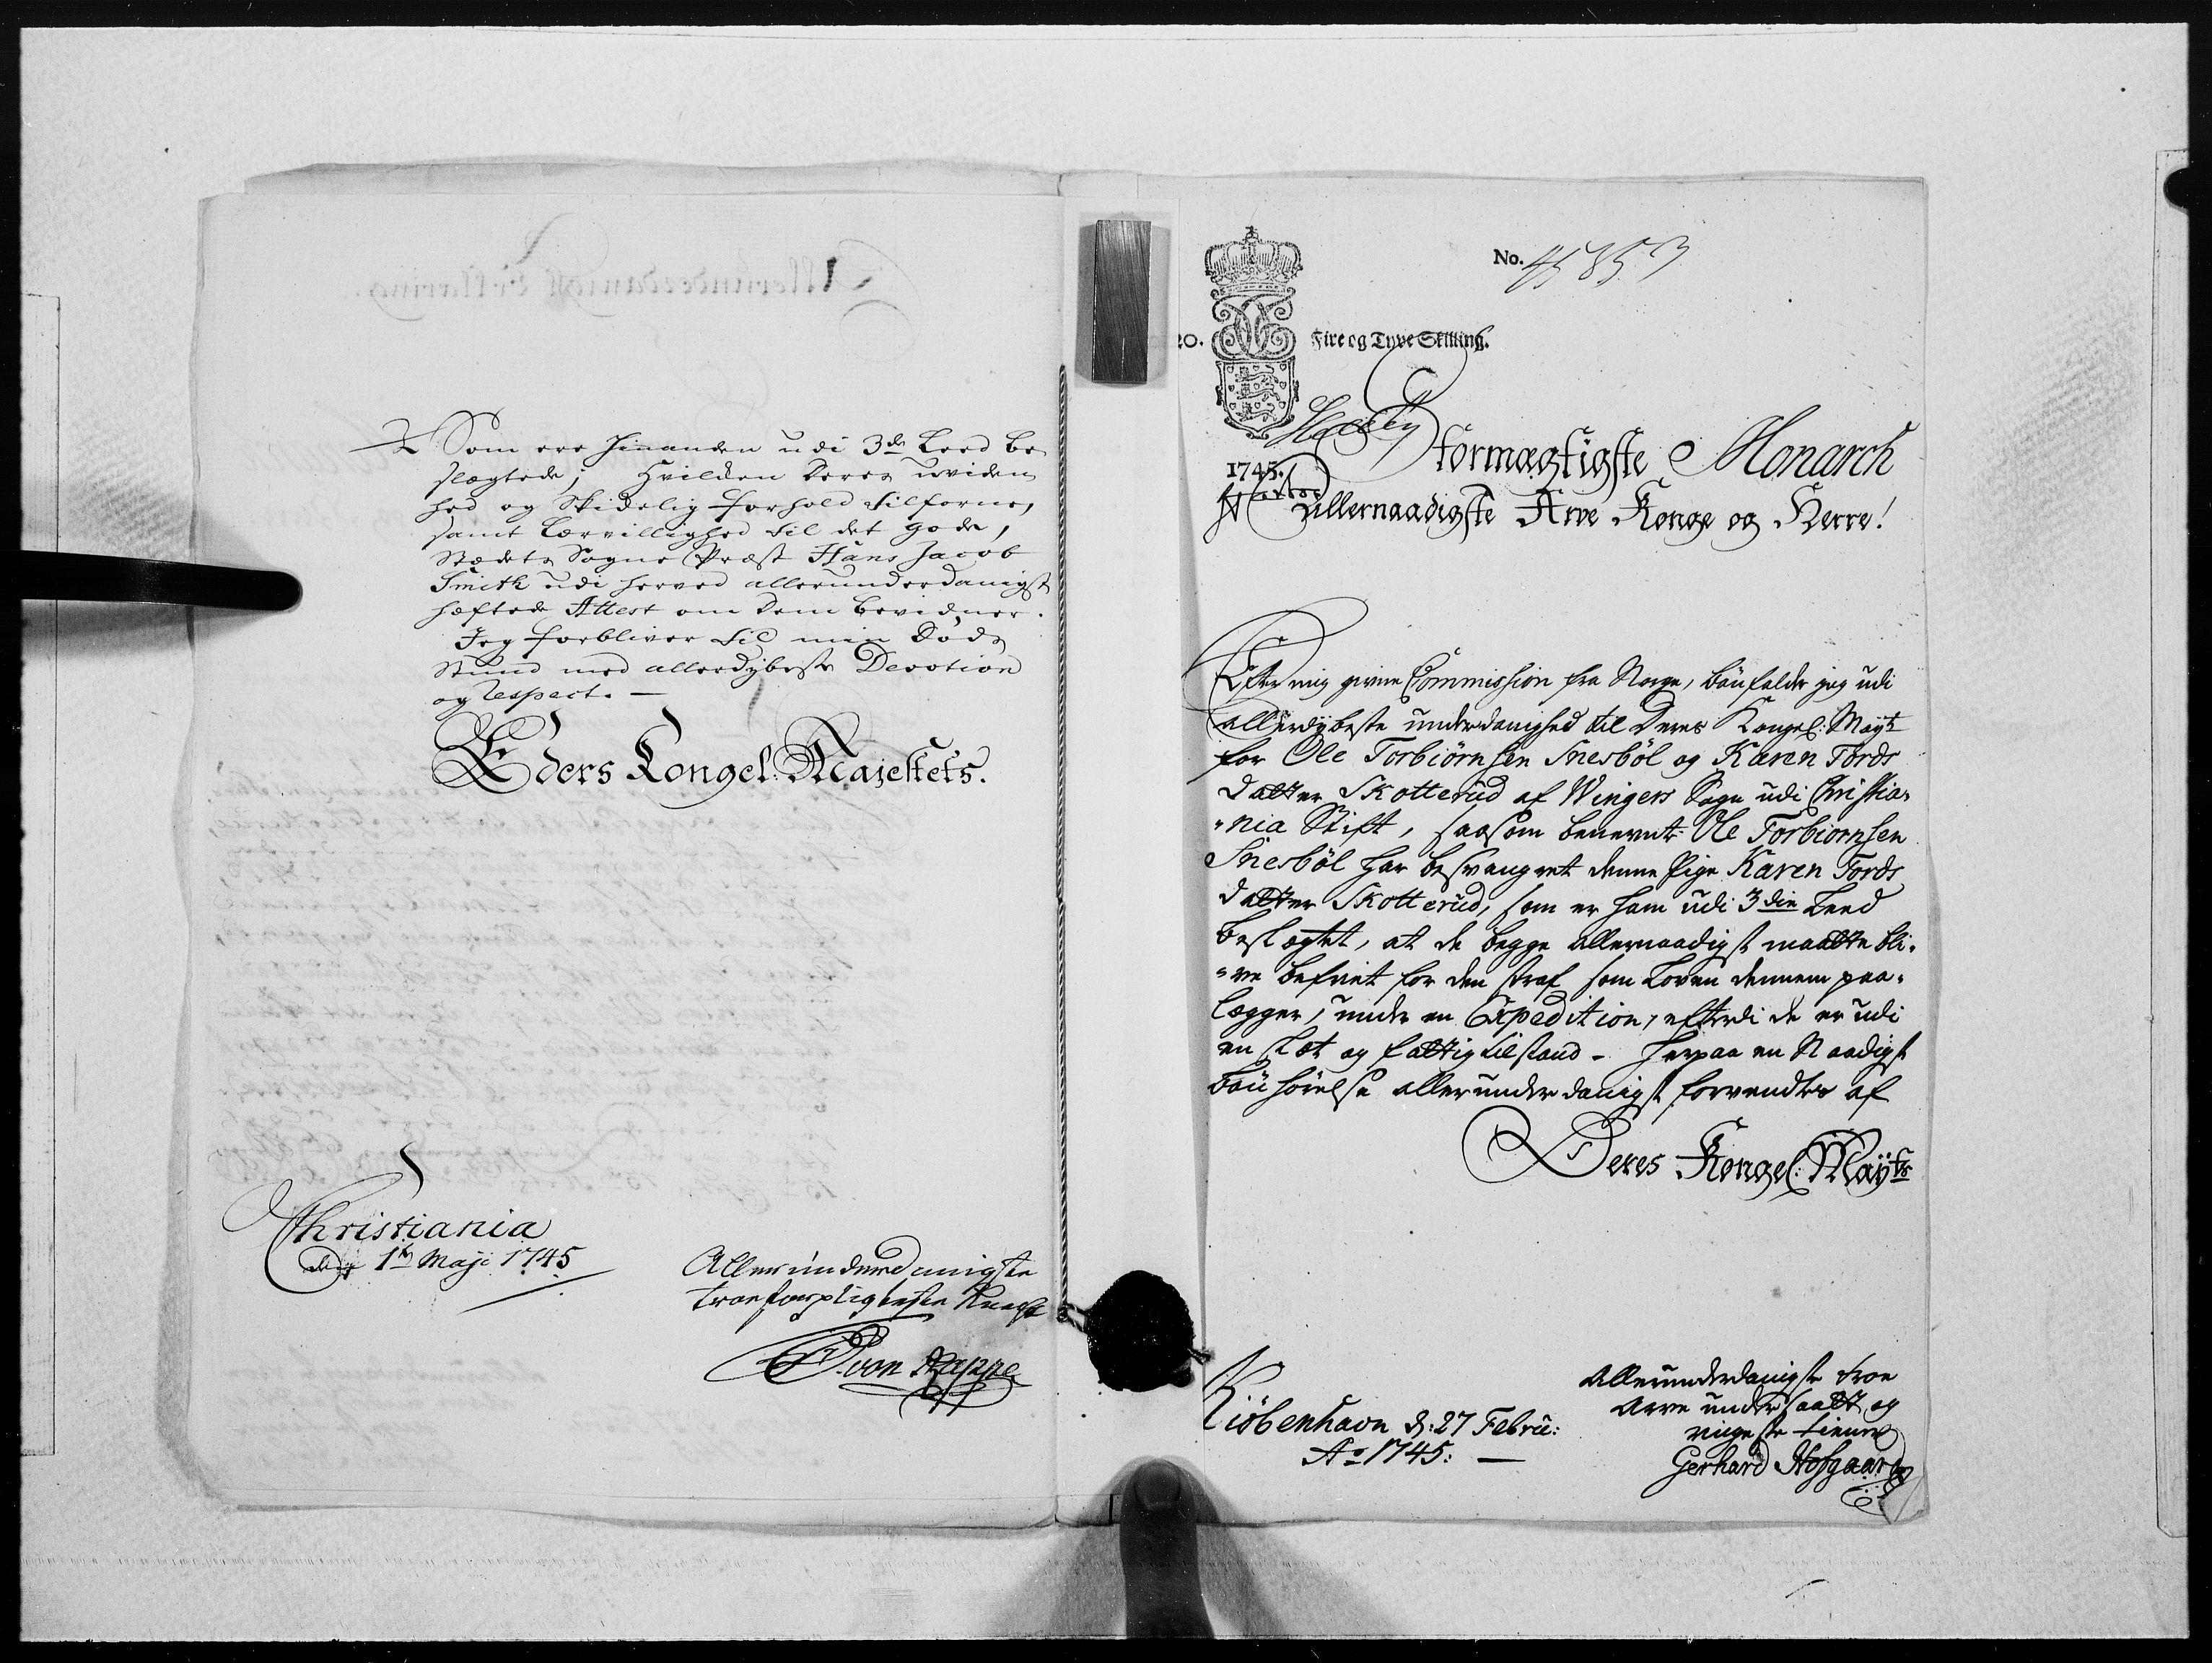 Som ere hinanden udi 3de Leed be
slægtede; Hvilken deres uviden
hed og Skikelig forhold tilforne,
samt Lærvillighed til det gode,
Stædets Sogne Præst Hans Jacob
Smith udi herved allerunderdanigst
hæftede Attest om dem bevidner.
Jeg forbliver til min Døds
Stund med allerdybeste Devotion
og respect. —
Eders Kongel: Majestets.
Christiania
den 1te Maji 1745
Allerunderdanigste
troe forpligteste Knegt
von Rappe
No. 45853
20.
Fire og Tyve Skilling.
1745.
Stormægtigste Monarch
Allernaadigste Arve Konge og Herre!
Efter mig given Commission fra Norge, bönfalder jeg udi
allerdybeste underdanighed til Deres Kongel: Mayt
for Ole Torbiörnsen Snesböl og Karen Tords
datter Skotterud af Wingers Sogn udi Christia-
-nia Stift, saasom benevnte Ole Torbiornsen
Snesböl har besvangret denne Pige Karen Tords
datter Skotterud, som er ham udi 3die Leed
beslægtet, at de begge allernaadigst maatte bli-
-ve befriet for den straf som Loven dennem paa-
lægger, under en Expedition, efterdi de er udi
en slet og fattig tilstand - herpaa en Naadigst
bönhörelse allerunderdanigst forventer af
Deres Kongel: Mayts
Kiöbenhavn d: 27 Febru:
Ao 1745: —
Allerunderdanigste troe
Arve undersaatt og
ringeste tienere
Gerhard Hofgaard